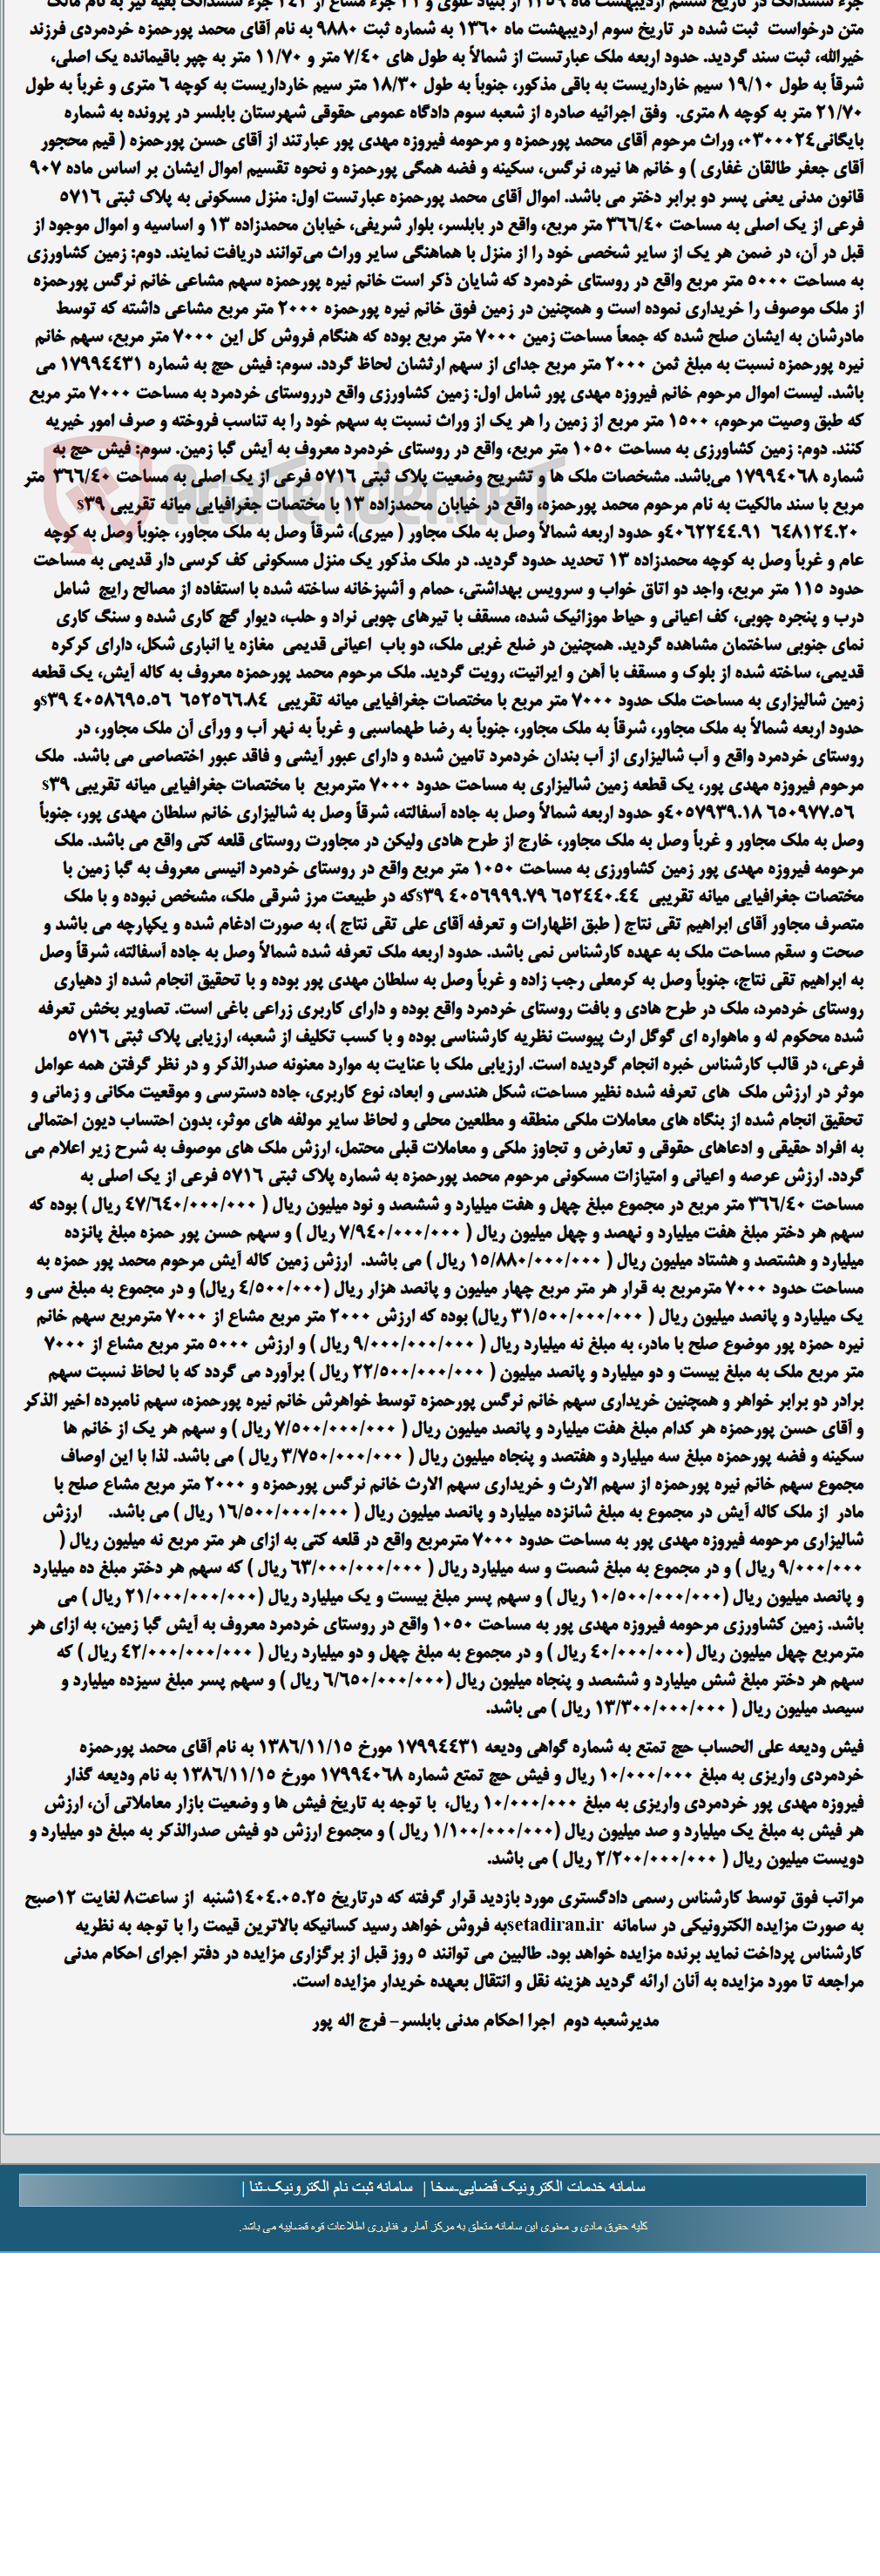 جزء ششدانگ در تاریخ ششم اردیبهشت ماه ۱۳۵۹ از بنیاد علوی و ۲۱ جزء مشاع از ۲۴۲ جزء ششدانگ بقیه نیز به نام مالک
متن درخواست ثبت شده در تاریخ سوم اردیبهشت ماه ۱۳۶۰ به شماره ثبت ۹۸۸۰ به نام آقای محمد پورحمزه خردمردی فرزند
خیرالله، ثبت سند گردید. حدود اربعه ملک عبارتست از شمالاً به طول های ۷/۴۰ متر و ۱۱/۷۰ متر به چپر باقیمانده یک اصلی،
شرقاً به طول ۱۹/۱۰ متر سیم خارداریست به باقی مذکور، جنوباً به طول ۱۸/۳۰ متر سیم خارداریست به کوچه ۶ متری و غرباً به طول
۲۱/۷۰ متر به کوچه ۸ متری. وفق اجرائیه صادره از شعبه سوم دادگاه عمومی حقوقی شهرستان بابلسر در پرونده به شماره
بایگانی۰۳۰۰۰۲۴، وراث مرحوم آقای محمد پورحمزه و مرحومه فیروزه مهدی پور عبارتند از آقای حسن پورحمزه ( قیم محجور
آقای جعفر طالقان غفاری ) و خانم ها نیره، نرگس، سکینه و فضه همگی پورحمزه و نحوه تقسیم اموال ایشان بر اساس ماده ۹۰۷
قانون مدنی یعنی پسر دو برابر دختر می باشد. اموال آقای محمد پورحمزه عبارتست اول: منزل مسکونی به پلاک ثبتی ۵۷۱۶
فرعی از یک اصلی به مساحت ۳۶۶/۴۰ متر مربع، واقع در بابلسر، بلوار شریفی، خیابان محمدزاده ۱۳ و اساسیه و اموال موجود از
قبل در آن، در ضمن هر یک از سایر شخصی خود را از منزل با هماهنگی سایر وراث می‌توانند دریافت نمایند. دوم: زمین کشاورزی
به مساحت ۵۰۰۰ متر مربع واقع در روستای خردمرد که شایان ذکر است خانم نیره پورحمزه سهم مشاعی خانم نرگس پورحمزه
از ملک موصوف را خریداری نموده است و همچنین در زمین فوق خانم نیره پورحمزه ۲۰۰۰ متر مربع مشاعی داشته که توسط
مادرشان به ایشان صلح شده که جمعاً مساحت زمین ۷۰۰۰ متر مربع بوده که هنگام فروش کل این ۷۰۰۰ متر مربع، سهم خانم
نیره پورحمزه نسبت به مبلغ ثمن ۲۰۰۰ متر مربع جدای از سهم ارثشان لحاظ گردد. سوم: فیش حج به شماره ۱۷۹۹۴۴۳۱ می
باشد. لیست اموال مرحوم خانم فیروزه مهدی پور شامل اول: زمین کشاورزی واقع درروستای خردمرد به مساحت ۷۰۰۰ متر مربع
که طبق وصیت مرحوم، ۱۵۰۰ متر مربع از زمین را هر یک از وراث نسبت به سهم خود را به تناسب فروخته و صرف امور خیریه
کنند. دوم: زمین کشاورزی به مساحت ۱۰۵۰ متر مربع، واقع در روستای خردمرد معروف به آیش گبا زمین. سوم: فیش حج به
شماره ۱۷۹۹۴۰۶۸ می‌باشد. مشخصات ملک ها و تشریح وضعیت پلاک ثبتی ۵۷۱۶ فرعی از یک اصلی به مساحت ۳۶۶/۴۰ متر
مربع با سند مالکیت به نام مرحوم محمد پورحمزه، واقع در خیابان محمدزاده ۱۳ با مختصات جغرافیایی میانه تقریبی s۳۹
۶۴۸۱۲۴.۲۰ ۴۰۶۲۲۴۴.۹۱و حدود اربعه شمالاً وصل به ملک مجاور ( میری)، شرقاً وصل به ملک مجاور، جنوباً وصل به کوچه
عام و غرباً وصل به کوچه محمدزاده ۱۳ تحدید حدود گردید. در ملک مذکور یک منزل مسکونی کف کرسی دار قدیمی به مساحت
حدود ۱۱۵ متر مربع، واجد دو اتاق خواب و سرویس بهداشتی، حمام و آشپزخانه ساخته شده با استفاده از مصالح رایج شامل
درب و پنجره چوبی، کف اعیانی و حیاط موزائیک شده، مسقف با تیرهای چوبی نراد و حلب، دیوار گچ کاری شده و سنگ کاری
نمای جنوبی ساختمان مشاهده گردید. همچنین در ضلع غربی ملک، دو باب اعیانی قدیمی مغازه یا انباری شکل، دارای کرکره
قدیمی، ساخته شده از بلوک و مسقف با آهن و ایرانیت، رویت گردید. ملک مرحوم محمد پورحمزه معروف به کاله آیش، یک قطعه
زمین شالیزاری به مساحت ملک حدود ۷۰۰۰ متر مربع با مختصات جغرافیایی میانه تقریبی ۶۵۲۵۶۶.۸۴ ۴۰۵۸۶۹۵.۵۶ s۳۹و
حدود اربعه شمالاً به ملک مجاور، شرقاً به ملک مجاور، جنوباً به رضا طهماسبی و غرباً به نهر آب و ورآی آن ملک مجاور، در
روستای خردمرد واقع و آب شالیزاری از آب بندان خردمرد تامین شده و دارای عبور آیشی و فاقد عبور اختصاصی می باشد. ملک
مرحوم فیروزه مهدی پور، یک قطعه زمین شالیزاری به مساحت حدود ۷۰۰۰ مترمربع با مختصات جغرافیایی میانه تقریبی s۳۹
۶۵۰۹۷۷.۵۶ ۴۰۵۷۹۳۹.۱۸و حدود اربعه شمالاً وصل به جاده آسفالته، شرقاً وصل به شالیزاری خانم سلطان مهدی پور، جنوباً
وصل به ملک مجاور و غرباً وصل به ملک مجاور، خارج از طرح هادی ولیکن در مجاورت روستای قلعه کتی واقع می باشد. ملک
مرحومه فیروزه مهدی پور زمین کشاورزی به مساحت ۱۰۵۰ متر مربع واقع در روستای خردمرد انیسی معروف به گبا زمین با
مختصات جغرافیایی میانه تقریبی ۶۵۲۴۴۰.۴۴ ۴۰۵۶۹۹۹.۷۹ s۳۹که در طبیعت مرز شرقی ملک، مشخص نبوده و با ملک
متصرف مجاور آقای ابراهیم تقی نتاج ( طبق اظهارات و تعرفه آقای علی تقی نتاج )، به صورت ادغام شده و یکپارچه می باشد و
صحت و سقم مساحت ملک به عهده کارشناس نمی باشد. حدود اربعه ملک تعرفه شده شمالاً وصل به جاده آسفالته، شرقاً وصل
به ابراهیم تقی نتاج، جنوباً وصل به کرمعلی رجب زاده و غرباً وصل به سلطان مهدی پور بوده و با تحقیق انجام شده از دهیاری
روستای خردمرد، ملک در طرح هادی و بافت روستای خردمرد واقع بوده و دارای کاربری زراعی باغی است. تصاویر بخش تعرفه
شده محکوم له و ماهواره ای گوگل ارث پیوست نظریه کارشناسی بوده و با کسب تکلیف از شعبه، ارزیابی پلاک ثبتی ۵۷۱۶
فرعی، در قالب کارشناس خبره انجام گردیده است. ارزیابی ملک با عنایت به موارد معنونه صدرالذکر و در نظر گرفتن همه عوامل
موثر در ارزش ملک های تعرفه شده نظیر مساحت، شکل هندسی و ابعاد، نوع کاربری، جاده دسترسی و موقعیت مکانی و زمانی و
تحقیق انجام شده از بنگاه های معاملات ملکی منطقه و مطلعین محلی و لحاظ سایر مولفه های موثر، بدون احتساب دیون احتمالی
به افراد حقیقی و ادعاهای حقوقی و تعارض و تجاوز ملکی و معاملات قبلی محتمل، ارزش ملک های موصوف به شرح زیر اعلام می
گردد. ارزش عرصه و اعیانی و امتیازات مسکونی مرحوم محمد پورحمزه به شماره پلاک ثبتی ۵۷۱۶ فرعی از یک اصلی به
مساحت ۳۶۶/۴۰ متر مربع در مجموع مبلغ چهل و هفت میلیارد و ششصد و نود میلیون ریال ( ۴۷/۶۴۰/۰۰۰/۰۰۰ ریال ) بوده که
سهم هر دختر مبلغ هفت میلیارد و نهصد و چهل میلیون ریال ( ۷/۹۴۰/۰۰۰/۰۰۰ ریال ) و سهم حسن پور حمزه مبلغ پانزده
میلیارد و هشتصد و هشتاد میلیون ریال ( ۱۵/۸۸۰/۰۰۰/۰۰۰ ریال ) می باشد. ارزش زمین کاله آیش مرحوم محمد پور حمزه به
مساحت حدود ۷۰۰۰ مترمربع به قرار هر متر مربع چهار میلیون و پانصد هزار ریال (۴/۵۰۰/۰۰۰ ریال) و در مجموع به مبلغ سی و
یک میلیارد و پانصد میلیون ریال ( ۳۱/۵۰۰/۰۰۰/۰۰۰ ریال) بوده که ارزش ۲۰۰۰ متر مربع مشاع از ۷۰۰۰ مترمربع سهم خانم
نیره حمزه پور موضوع صلح با مادر، به مبلغ نه میلیارد ریال ( ۹/۰۰۰/۰۰۰/۰۰۰ ریال ) و ارزش ۵۰۰۰ متر مربع مشاع از ۷۰۰۰
متر مربع ملک به مبلغ بیست و دو میلیارد و پانصد میلیون ( ۲۲/۵۰۰/۰۰۰/۰۰۰ ریال ) برآورد می گردد که با لحاظ نسبت سهم
برادر دو برابر خواهر و همچنین خریداری سهم خانم نرگس پورحمزه توسط خواهرش خانم نیره پورحمزه، سهم نامبرده اخیر الذکر
و آقای حسن پورحمزه هر کدام مبلغ هفت میلیارد و پانصد میلیون ریال ( ۷/۵۰۰/۰۰۰/۰۰۰ ریال ) و سهم هر یک از خانم ها
سکینه و فضه پورحمزه مبلغ سه میلیارد و هفتصد و پنجاه میلیون ریال ( ۳/۷۵۰/۰۰۰/۰۰۰ ریال ) می باشد. لذا با این اوصاف
مجموع سهم خانم نیره پورحمزه از سهم الارث و خریداری سهم الارث خانم نرگس پورحمزه و ۲۰۰۰ متر مربع مشاع صلح با
مادر از ملک کاله آیش در مجموع به مبلغ شانزده میلیارد و پانصد میلیون ریال ( ۱۶/۵۰۰/۰۰۰/۰۰۰ ریال ) می باشد. ارزش
شالیزاری مرحومه فیروزه مهدی پور به مساحت حدود ۷۰۰۰ مترمربع واقع در قلعه کتی به ازای هر متر مربع نه میلیون ریال (
۹/۰۰۰/۰۰۰ ریال ) و در مجموع به مبلغ شصت و سه میلیارد ریال ( ۶۳/۰۰۰/۰۰۰/۰۰۰ ریال ) که سهم هر دختر مبلغ ده میلیارد
و پانصد میلیون ریال (۱۰/۵۰۰/۰۰۰/۰۰۰ ریال ) و سهم پسر مبلغ بیست و یک میلیارد ریال (۲۱/۰۰۰/۰۰۰/۰۰۰ ریال ) می
باشد. زمین کشاورزی مرحومه فیروزه مهدی پور به مساحت ۱۰۵۰ واقع در روستای خردمرد معروف به آیش گبا زمین، به ازای هر
مترمربع چهل میلیون ریال (۴۰/۰۰۰/۰۰۰ ریال ) و در مجموع به مبلغ چهل و دو میلیارد ریال ( ۴۲/۰۰۰/۰۰۰/۰۰۰ ریال ) که
سهم هر دختر مبلغ شش میلیارد و ششصد و پنجاه میلیون ریال (۶/۶۵۰/۰۰۰/۰۰۰ ریال ) و سهم پسر مبلغ سیزده میلیارد و
سیصد میلیون ریال ( ۱۳/۳۰۰/۰۰۰/۰۰۰ ریال ) می باشد.
فیش ودیعه علی الحساب حج تمتع به شماره گواهی ودیعه ۱۷۹۹۴۴۳۱ مورخ ۱۳۸۶/۱۱/۱۵ به نام آقای محمد پورحمزه
خردمردی واریزی به مبلغ ۱۰/۰۰۰/۰۰۰ ریال و فیش حج تمتع شماره ۱۷۹۹۴۰۶۸ مورخ ۱۳۸۶/۱۱/۱۵ به نام ودیعه گذار
فیروزه مهدی پور خردمردی واریزی به مبلغ ۱۰/۰۰۰/۰۰۰ ریال، با توجه به تاریخ فیش ها و وضعیت بازار معاملاتی آن، ارزش
هر فیش به مبلغ یک میلیارد و صد میلیون ریال (۱/۱۰۰/۰۰۰/۰۰۰ ریال ) و مجموع ارزش دو فیش صدرالذکر به مبلغ دو میلیارد و
دویست میلیون ریال ( ۲/۲۰۰/۰۰۰/۰۰۰ ریال ) می باشد.
مراتب فوق توسط کارشناس رسمی دادگستری مورد بازدید قرار گرفته که درتاریخ ۱۴۰۴.۰۵.۲۵شنبه از ساعت۸ لغایت ۱۲صبح
به صورت مزایده الکترونیکی در سامانه setadiran.irبه فروش خواهد رسید کسانیکه بالاترین قیمت را با توجه به نظریه
کارشناس پرداخت نماید برنده مزایده خواهد بود. طالبین می توانند ۵ روز قبل از برگزاری مزایده در دفتر اجرای احکام مدنی
مراجعه تا مورد مزایده به آنان ارائه گردید هزینه نقل و انتقال بعهده خریدار مزایده است.
مدیرشعبه دوم اجرا احکام مدنی بابلسر– فرج اله پور
سامانه خدمات الکترونیک قضایی-سخا | سامانه ثبت نام الکترونیک-ثنا |
کلیه حقوق مادی و معنوی این سامانه متعلق به مرکز آمار و فناوری اطلاعات قوه قضاییه می باشد.
AriaTender.neT